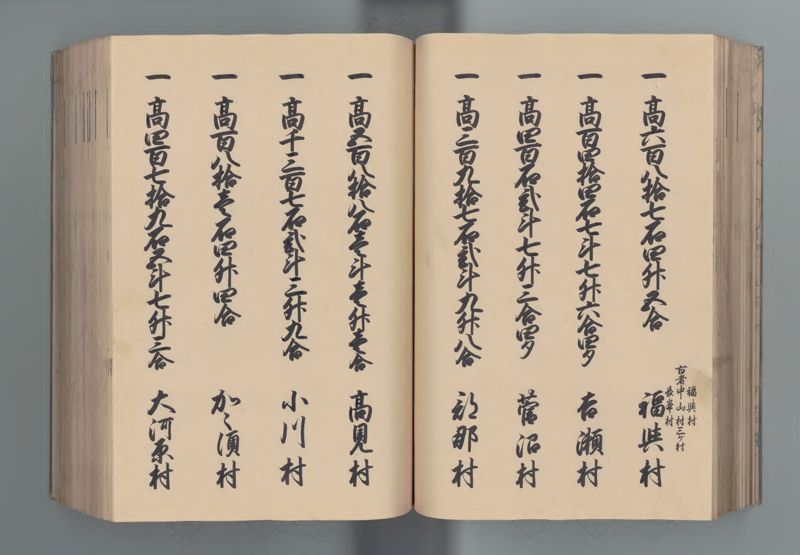 一 高六百八拾七石四升五合 福與村
福與村
古者中山村三ケ村
長峯村
一 高百四拾四石七斗七升六合四夕 吉瀬村
一 高四百石弐斗七升三合四夕 菅沼村
一 高三百九拾七石弐斗九升八合 那村
一 高五百八拾八石壱斗壱升壱合 高見村
一 高千三百七石弐斗三升九合 小川村
一 高百八拾壱石四升四合 かゝ須村
一 高四百七拾九石五斗七升三合 大河原村